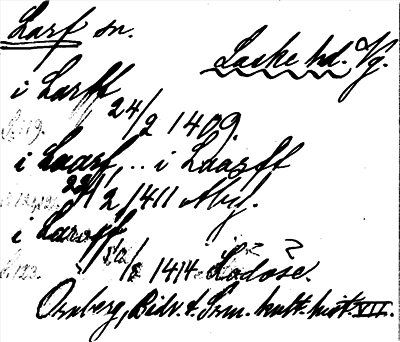 Larf sn.
Laske hd. Vg.
i Larff
24/2 1409.
i Laarf, .. i Laarff
2 1411
i Laroff
/2 1414 Lödöse.
Ornberg, Bidr. t. Srm. kult. hist. VII.